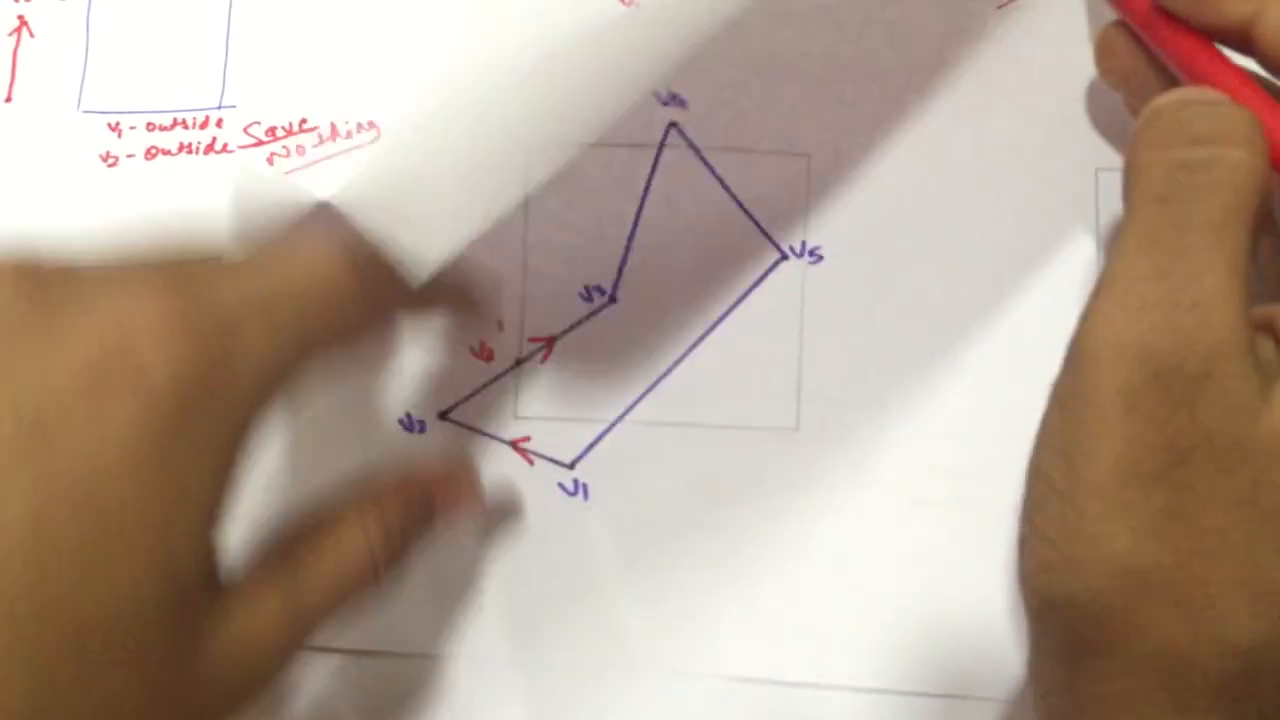 V1 - outside
V2 - outside Save
Nothing
V5
V3
V2
V1